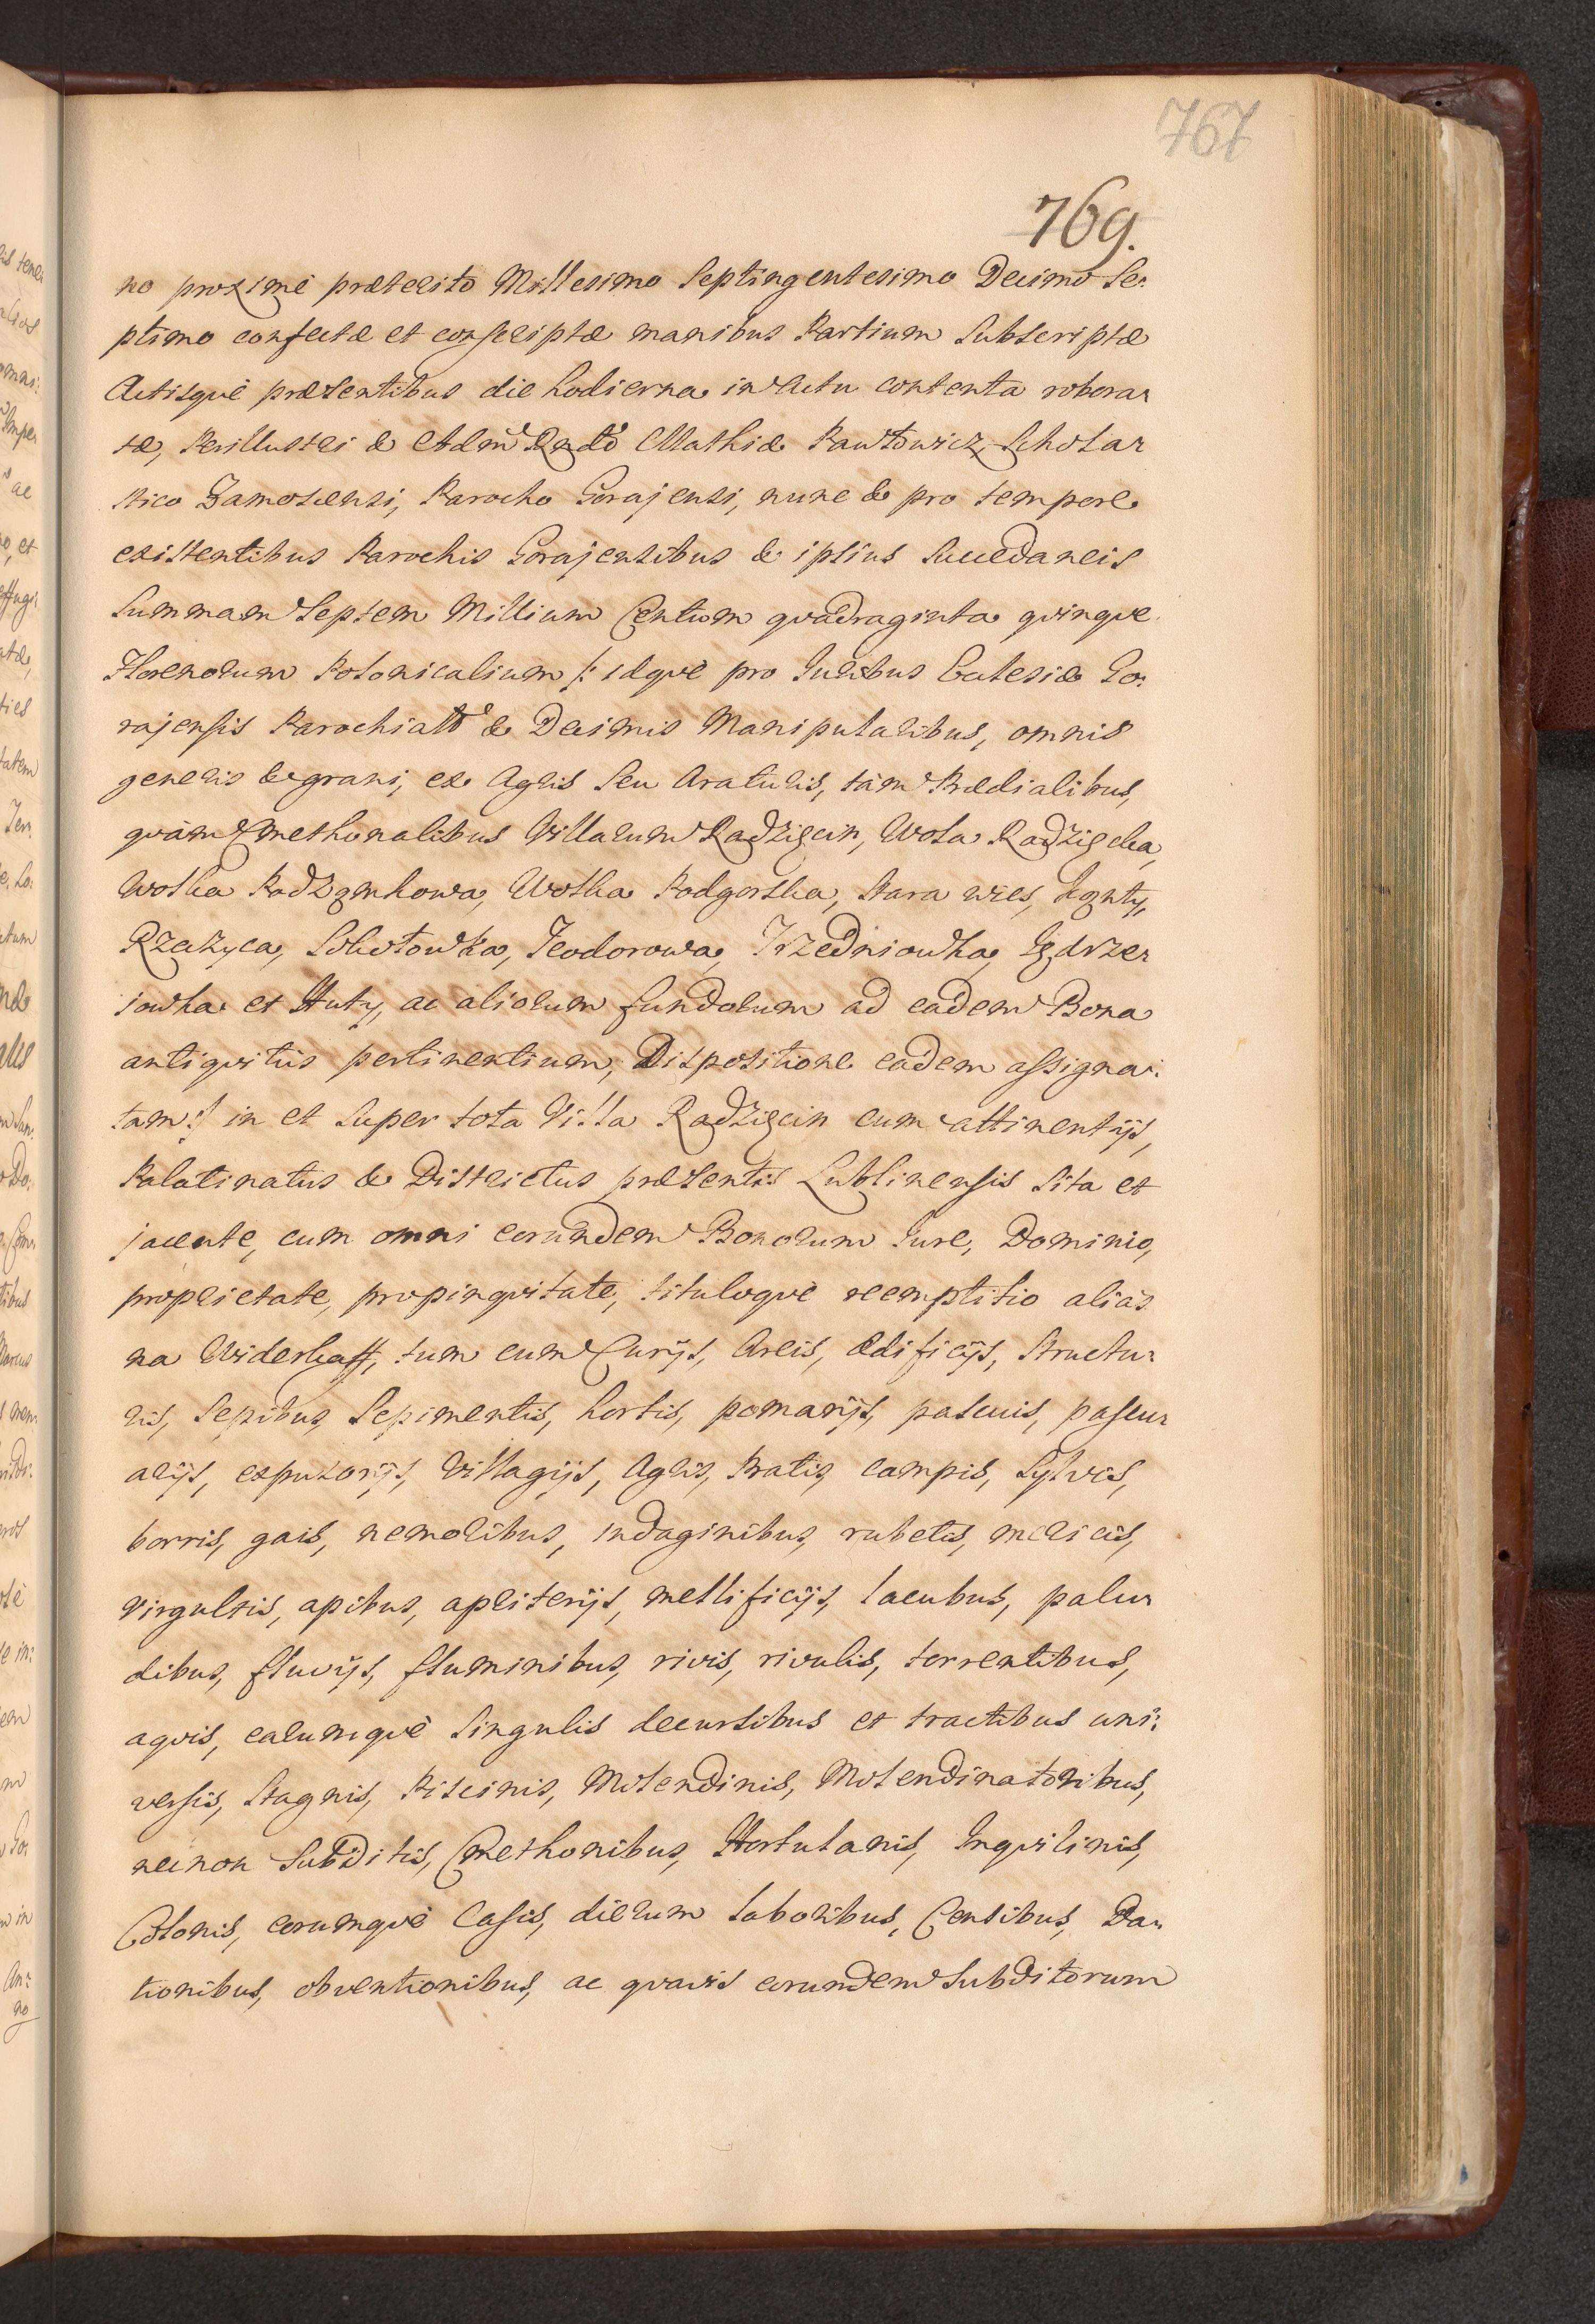 767
769.
no proximè præterito Millesimo Septingentesimo Decimo Se:
ptimo confectæ et conscriptæ manibus Partium Subscriptæ
Actisquè præsentibus die hodierna in Actu contenta robora-
tæ, Perillustri & Adm Rndo Mathiæ Pawłowicz, Schola-
stico Zamoscensi, Parocho Gorajensi, nunc & pro tempore
existentibus Parochis Gorajensibus & ipsius Succedaneis
Summam Septem Millium Centum quadraginta quinque
Florenorum Polonicalium /: idquè pro Juribus Ecclesiæ Go:
rajensis Parochialis & Decimis Manipularibus, omnis
generis & grani, ex Agris Seu Araturis, tàm Prædialibus,
quàm Cmethonalibus Villarum Radzięcin, Wola Radzięcka,
Wolka Podzamkowa, Wolka Podgorska, Stara wies, Kąnty,
Rzeżyca, Sokołowka, Teodorowa, Trzedniowka, Jędrze-
jowka et Huty, ac aliorum fundorum ad eadem Bona
antiquitùs pertinentium, Dispositione eadem assigna:
tam :/ in et Super tota Villa Radzięcin cum attinentijs,
Palatinatus & Districtus præsentis Lublinensis Sita et
jacente, cum omni eorundem Bonorum Jure, Dominio,
proprietate, propinquitate, tituloquè reemptitio aliàs
na Widerkaff, tum cum Curijs, Areis, Ædificijs, Structu-
ris, Sepibus, Sepimentis, hortis, pomarijs, pascuis, pascu-
arijs, expusorijs, Villagijs, Agris, Pratis, campis, Sylvis,
borris, gais, nemoribus, indaginibus, rubetis, mericis,
virgultis, apibus, apristerijs, mellificijs, lacubus, palu-
dibus, fluvijs, fluminibus, rivis, rivulis, torrentibus,
aquis, earumquè Singulis decursibus et tractibus uni:
versis, Stagnis, Piscinis, Molendinis, Molendinatoribus,
necnon Subditis, Cmethonibus, Hortulanis, Inquilinis,
Colonis, eorumquè Casis, dierum laboribus, Censibus, Da-
tionibus, obventionibus, ac quavis eorundem Subditorum